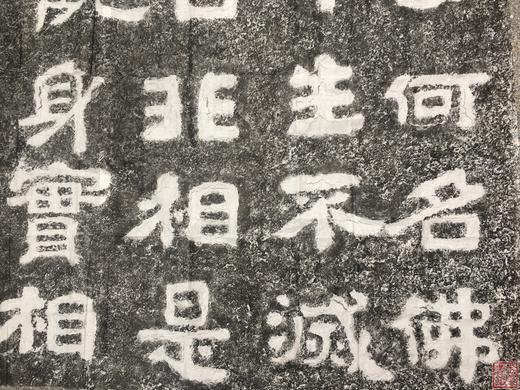 何名佛
生不滅
非相是
身實相